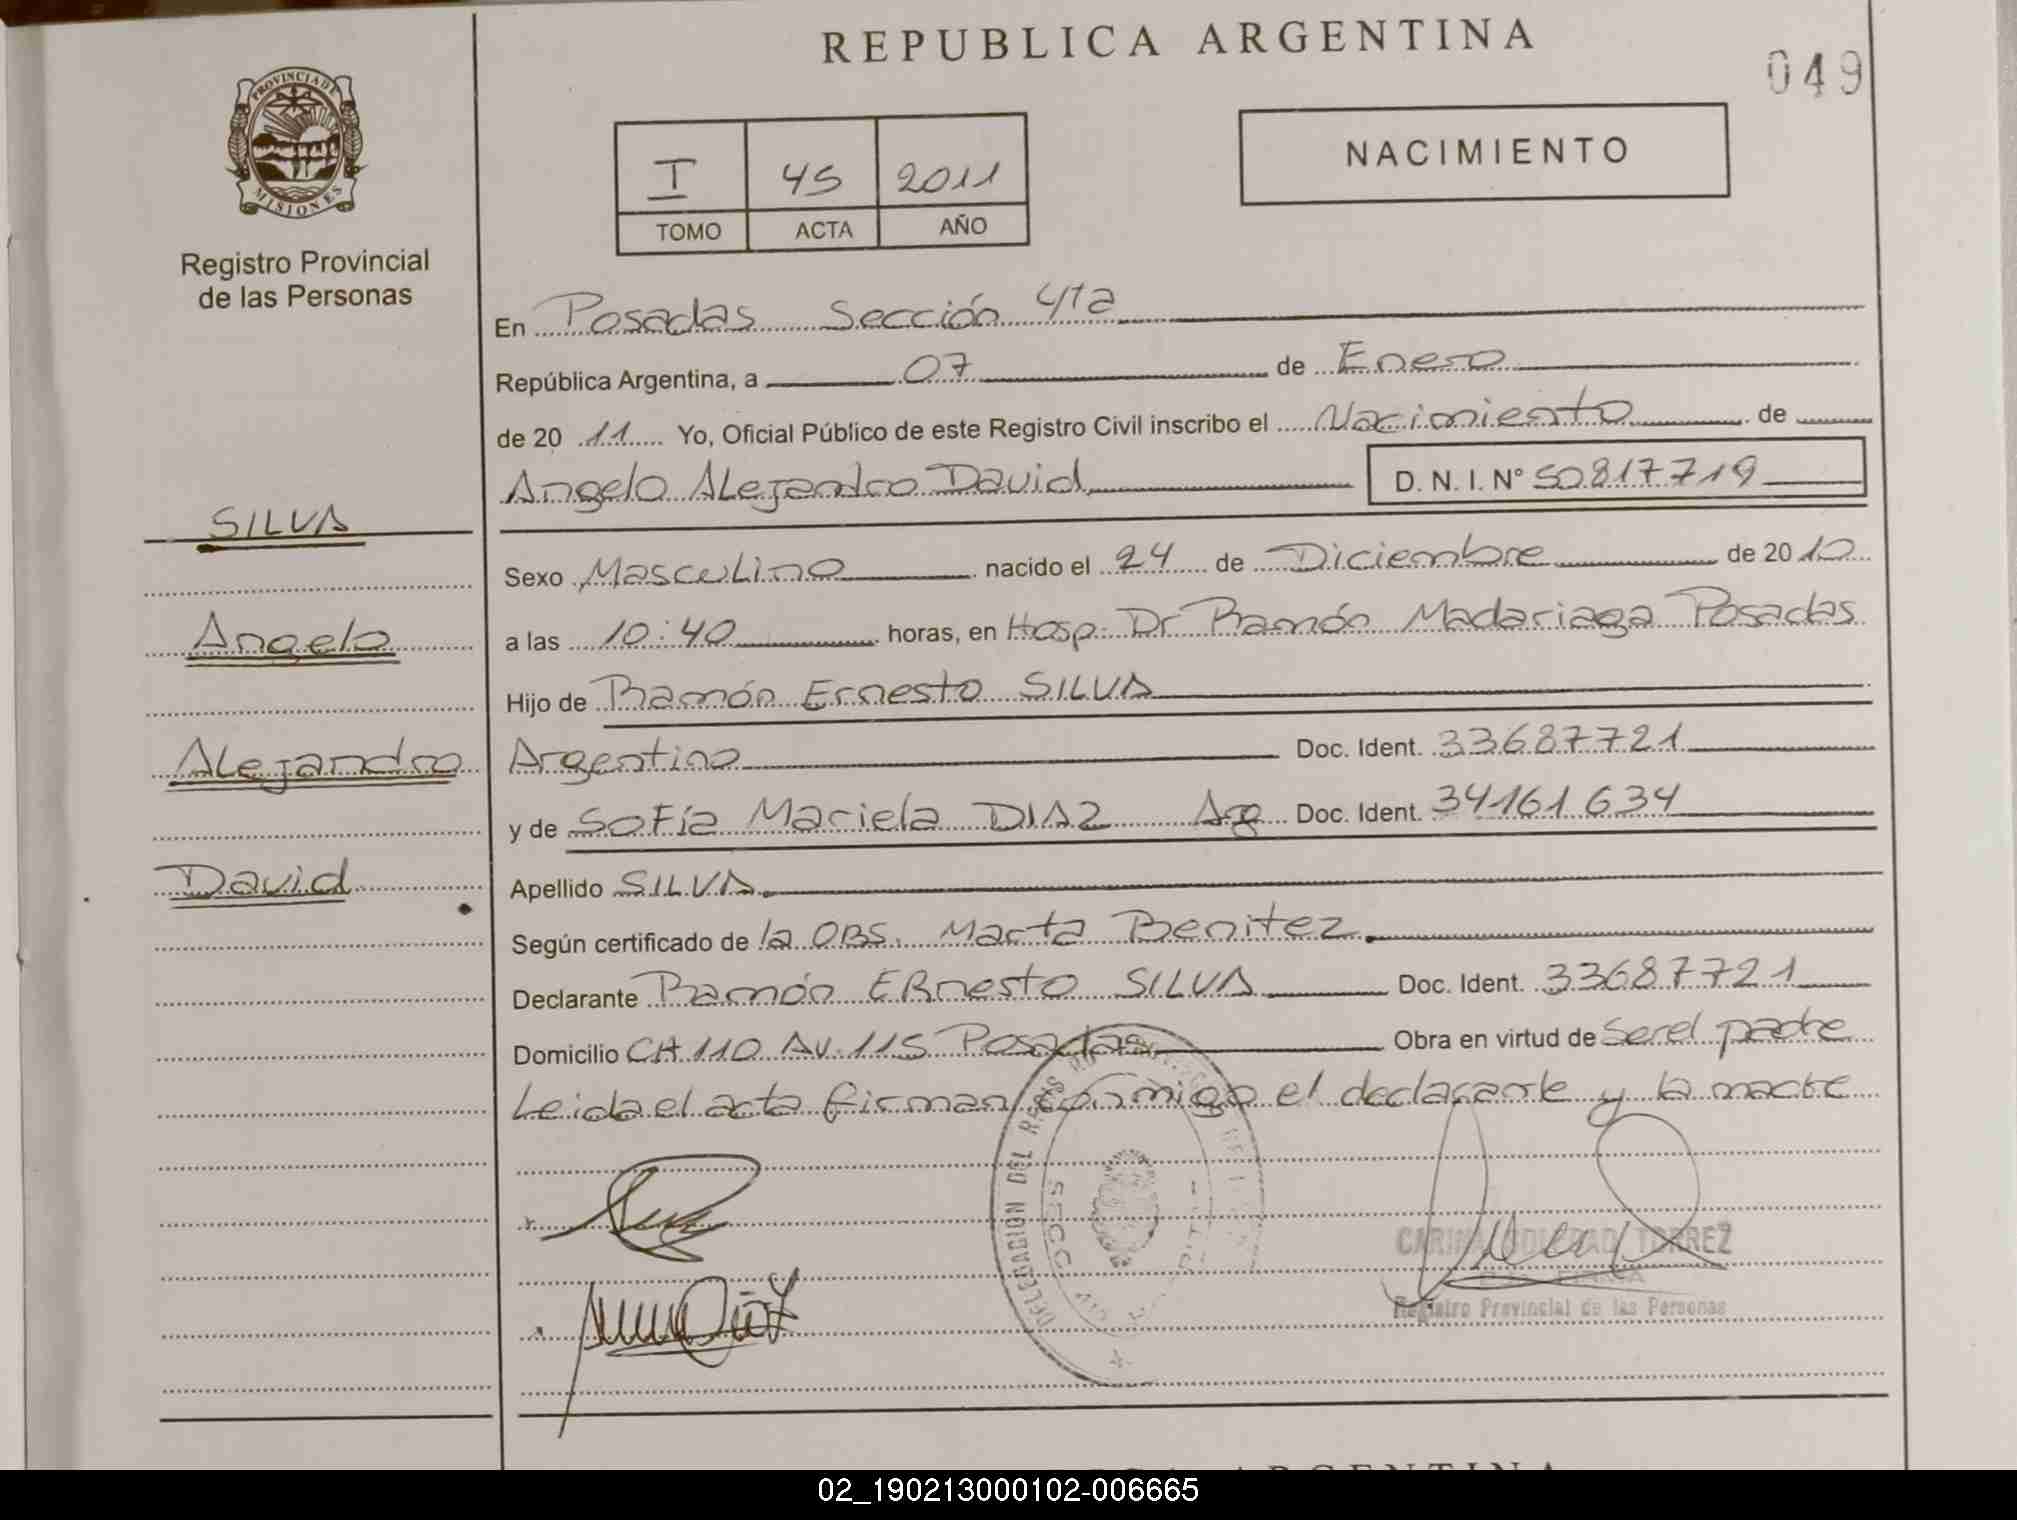 REPUBLICA ARGENTINA
049
PROVINCIA DE
MISIONES
Registro Provincial
de las Personas
I 45 2011
TOMO ACTA AÑO
NACIMIENTO
En Posadas Sección 4ta
República Argentina, a 07 de Enero
de 20 11 Yo, Oficial Público de este Registro Civil inscribo el Nacimiento de
Angelo Alejandro David D. N. I. Nº 50.817.719
SILVA
Angelo
Alejandro
David
Sexo Masculino nacido el 24 de Diciembre de 2010
a las 10:40 horas, en Hosp. Dr Ramón Madariaga Posadas
Hijo de Ramón Ernesto SILVA
Argentino Doc. Ident. 33687721
y de Sofía Mariela DIAZ Arg Doc. Ident. 34161634
Apellido SILVA
Según certificado de la OBS. Marta Benitez
Declarante Ramón ERnesto SILVA Doc. Ident. 33687721
Domicilio CH 110 AV. 115 Posadas Obra en virtud de Ser el padre
Leida el acta firman conmigo el declarante y la madre
DELEGACION DEL
SECC
CARINA SOLEDAD TORREZ
Registro Provincial de las Personas
02_190213000102-006665